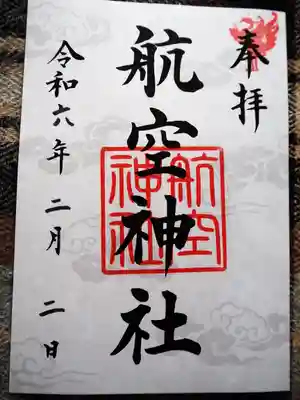 奉拝
航空神社
航空
神社
令和六年 二月 二日